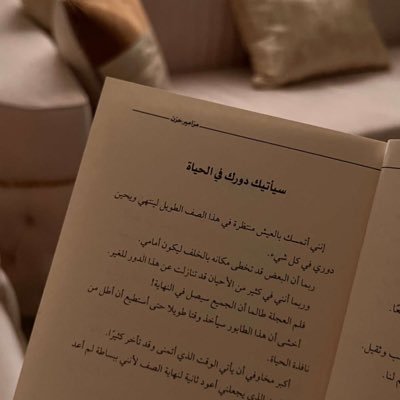 مزامير حزن
سيأتيك دورك في الحياة
إنني أتمسك بالعيش منتظرة في هذا الصف الطويل لينتهي ويحين
دوري في كل شيء.
ربما أن البعض قد تخطى مكانه بالخلف ليكون أمامي.
وربما أنني في كثير من الأحيان قد تنازلت عن هذا الدور للغير.
فلم العجلة طالما أن الجميع سيصل في النهاية!
أخشى أن هذا الطابور سيأخذ وقتا طويلا حتى أستطيع أن أطل من
نافذة الحياة.
أكبر مخاوفي أن يأتي الوقت الذي أتمنى وقد تأخر كثيرًا.
الذي يجعلني أعود ثانية لنهاية الصف لأنني ببساطة لم أعد